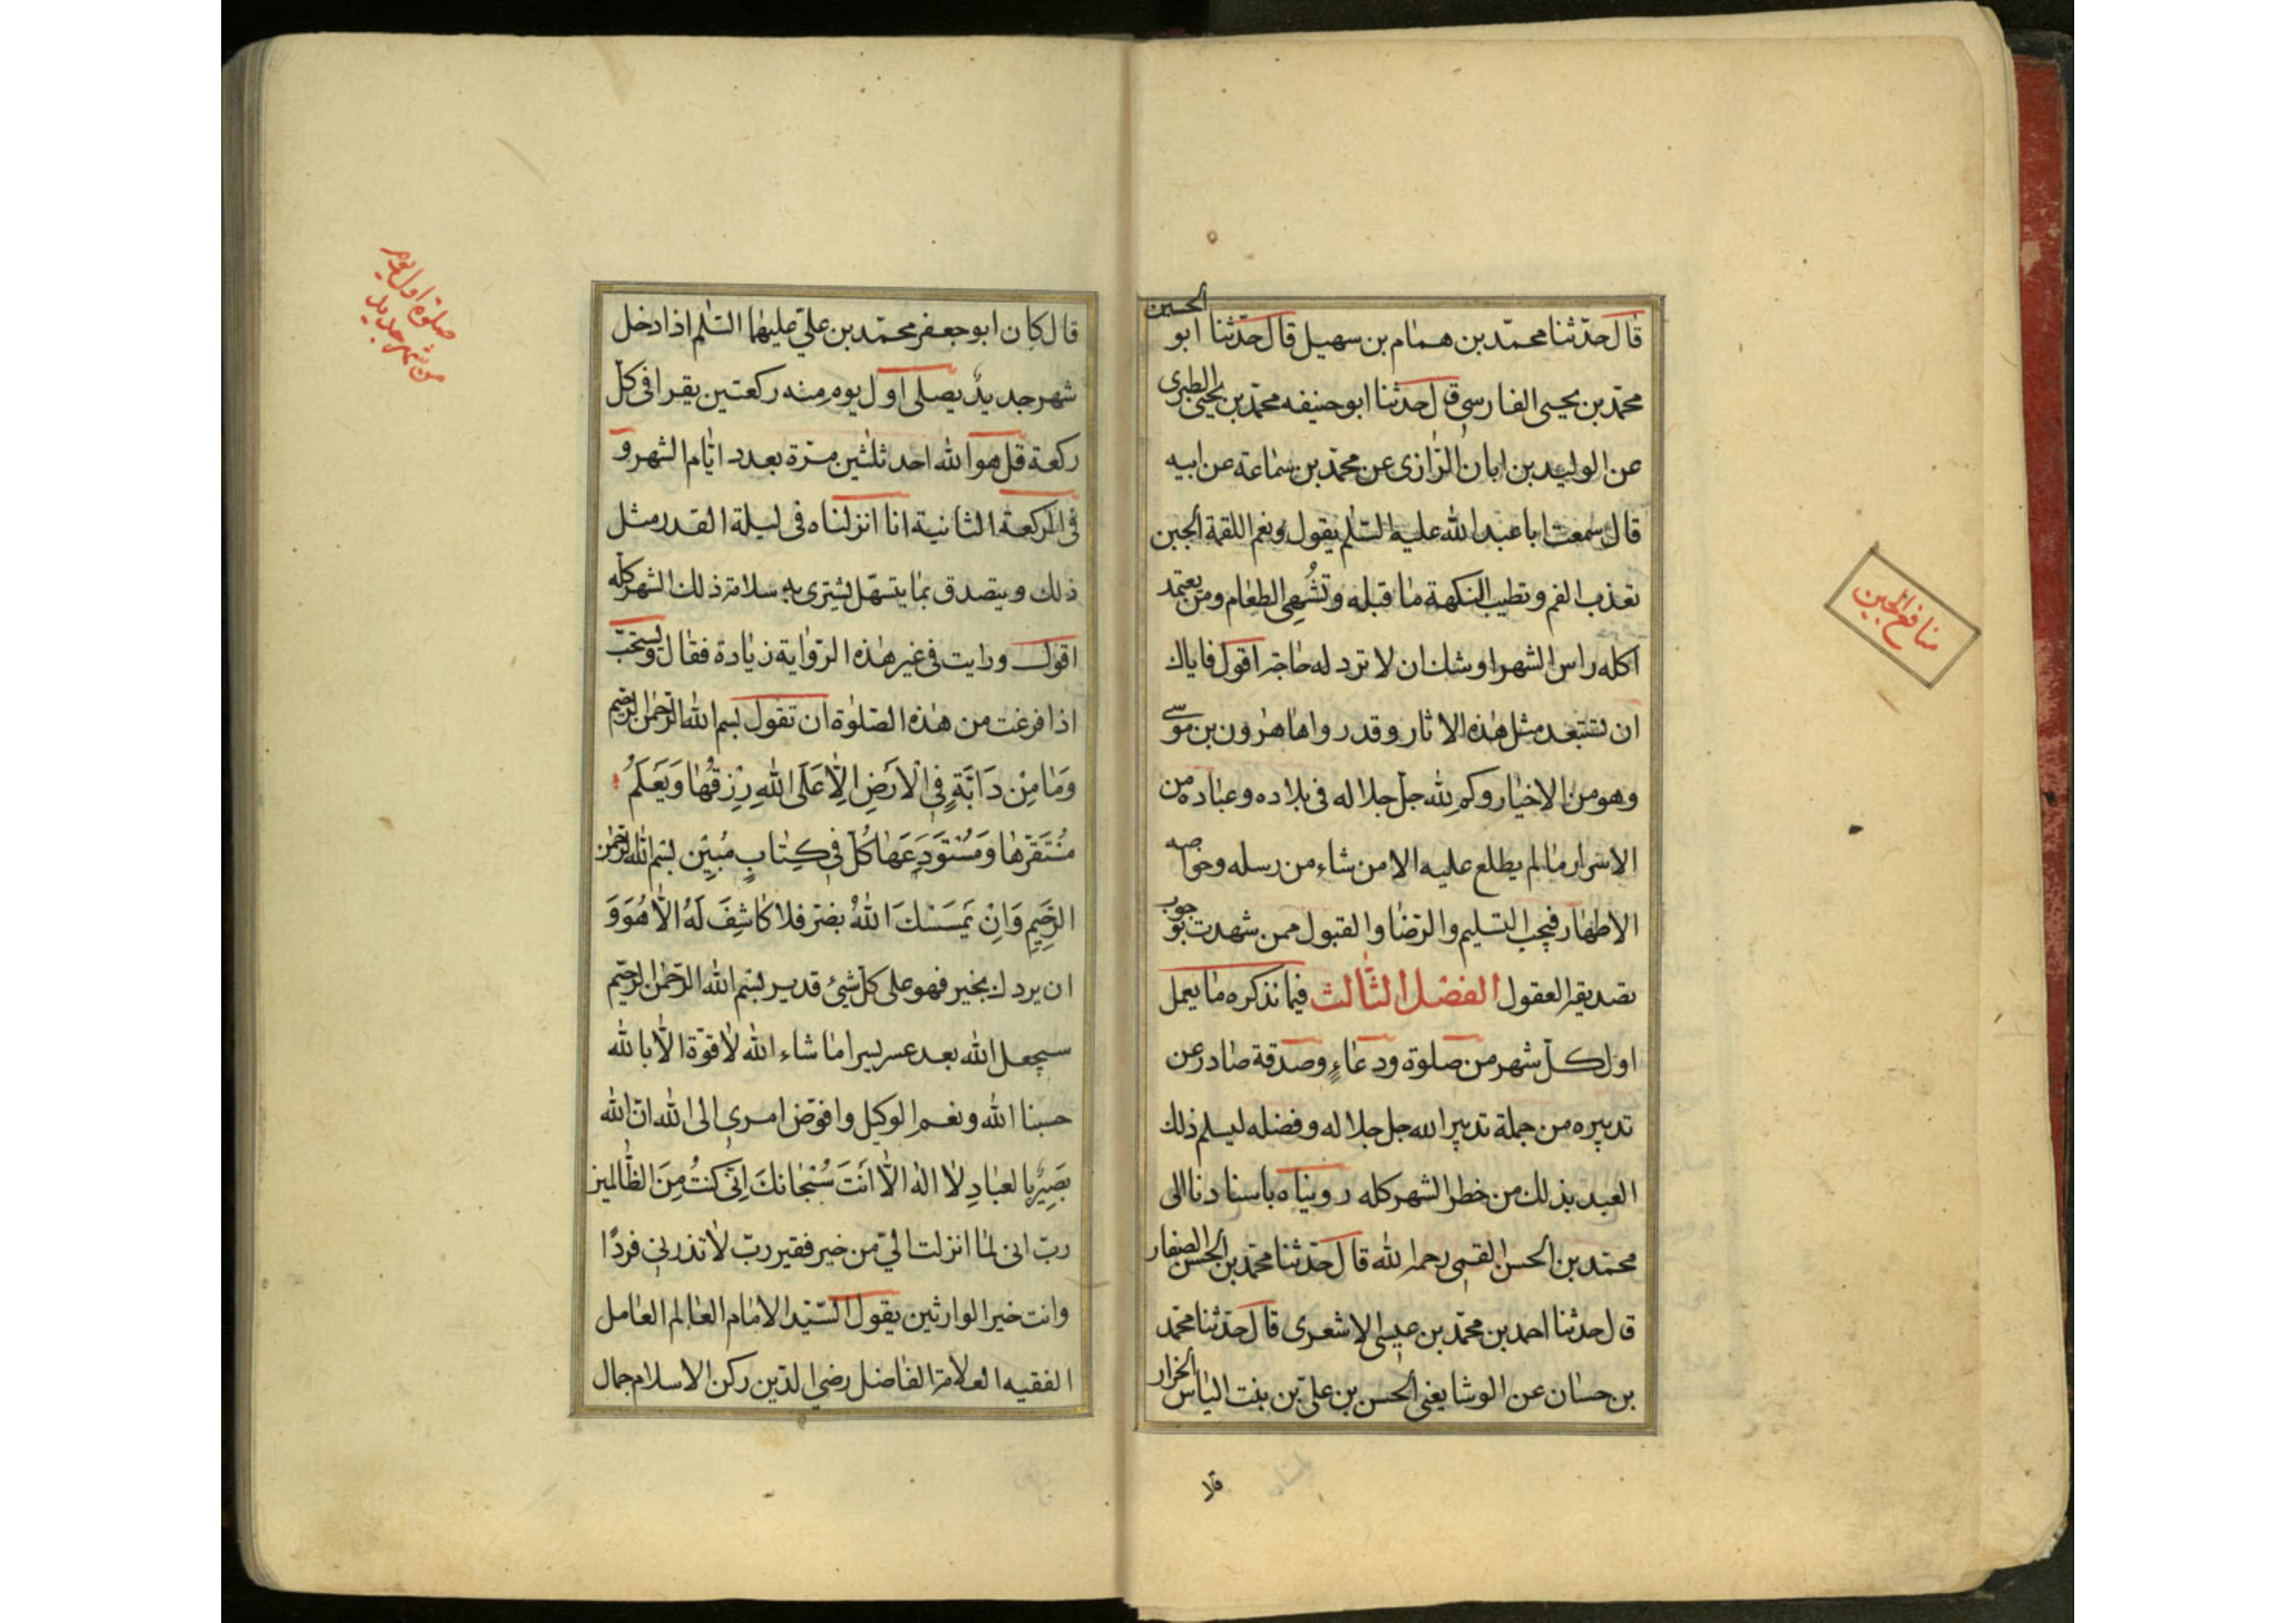 الحسين
قال حدثنا محمد بن همام بن سهيل قال حدثنا ابو
محمد بن يحيى الفارسي قال حدثنا ابو حنيفه محمد بن يحيى الطبرى
عن الوليد بن ابان الرازى عن محمد بن سماعة عن ابيه
قال سمعت ابا عبد الله عليه السلم يقول ونعم اللقمة الجبن
تعذب الفم وتطيب النكهة ما قبله وتشهى الطعام ومن يعتمد
اكله راس الشهر اوشك ان لا ترد له حاجة اقول فاياك
ان تستبعد مثل هذه الاثار وقد رواها هرون بن موسى
وهو من الاخيار وكم لله جل جلاله فى بلاده وعباده من
الاسرار ما لم يطلع عليه الا من شاء من رسله وخواصه
الاطهار فيجب التسليم والرضا والقبول ممن شهدت بوجوب
تصديقه العقول الفصل الثالث فيما نذكره مما يعمل
اول كل شهر من صلوة ودعاء وصدقة صادر عن
تدبيره من جملة تدبير الله جل جلاله وفضله ليسلم ذلك
العبد بذلك من خطر الشهر كله رويناه باسنادنا الى
محمد بن الحسن القمى رحمه الله قال حدثنا محمد بن الحسن الصفار
قال حدثنا احمد بن محمد بن عيسى الاشعرى قال حدثنا محمد
بن حسان عن الوشا يعنى الحسن بن على بن بنت الياس الخزاز
منافع الجبن
قال كان ابو جعفر محمد بن على عليهما السلم اذا دخل
شهر جديد يصلى اول يوم منه ركعتين يقرا فى كل
ركعة قل هو الله احد ثلثين مرة بعدد ايام الشهر و
فى الركعة الثانية انا انزلناه فى ليلة القدر مثل
ذلك ويتصدق بما يتسهل يشترى به سلامة ذلك الشهر كله
اقول ورايت فى غير هذه الرواية زيادة فقال ويستحب
اذا فرغت من هذه الصلوة ان تقول بسم الله الرحمن الرحيم
وَمَا مِنْ دَابَّةٍ فِى الْاَرْضِ اِلَّا عَلَى اللهِ رِزْقُهَا وَيَعْلَمُ
مُسْتَقَرَّهَا وَمُسْتَوْدَعَهَا كُلٌّ فِى كِتَابٍ مُبِيْنٍ بسم الله الرحمن
الرَّحِيمِ وَاِنْ يَمْسَسْكَ اللهُ بضر فلا كَاشِفَ لَهُ اِلَّا هُوَ وَ
ان يردك بخير فهو على كل شئ قدير بسم الله الرحمن الرحيم
سيجعل الله بعد عسر يسرا ما شاء الله لا قوة الا بالله
حسبنا الله ونعم الوكيل وافوض امرى الى الله ان الله
بَصِيرٌ بالعبادِ لا اله الا اَنْتَ سُبْحَانَكَ اِنِّى كُنْتُ مِنَ الظَّالمين
رب انى لما انزلت الي من خير فقير رب لا تذرنى فردًا
وانت خير الوارثين يقول السيد الامام العالم العامل
الفقيه العلامة الفاضل رضى الدين ركن الاسلام جمال
صلوة اول يوم
من شهر جديد